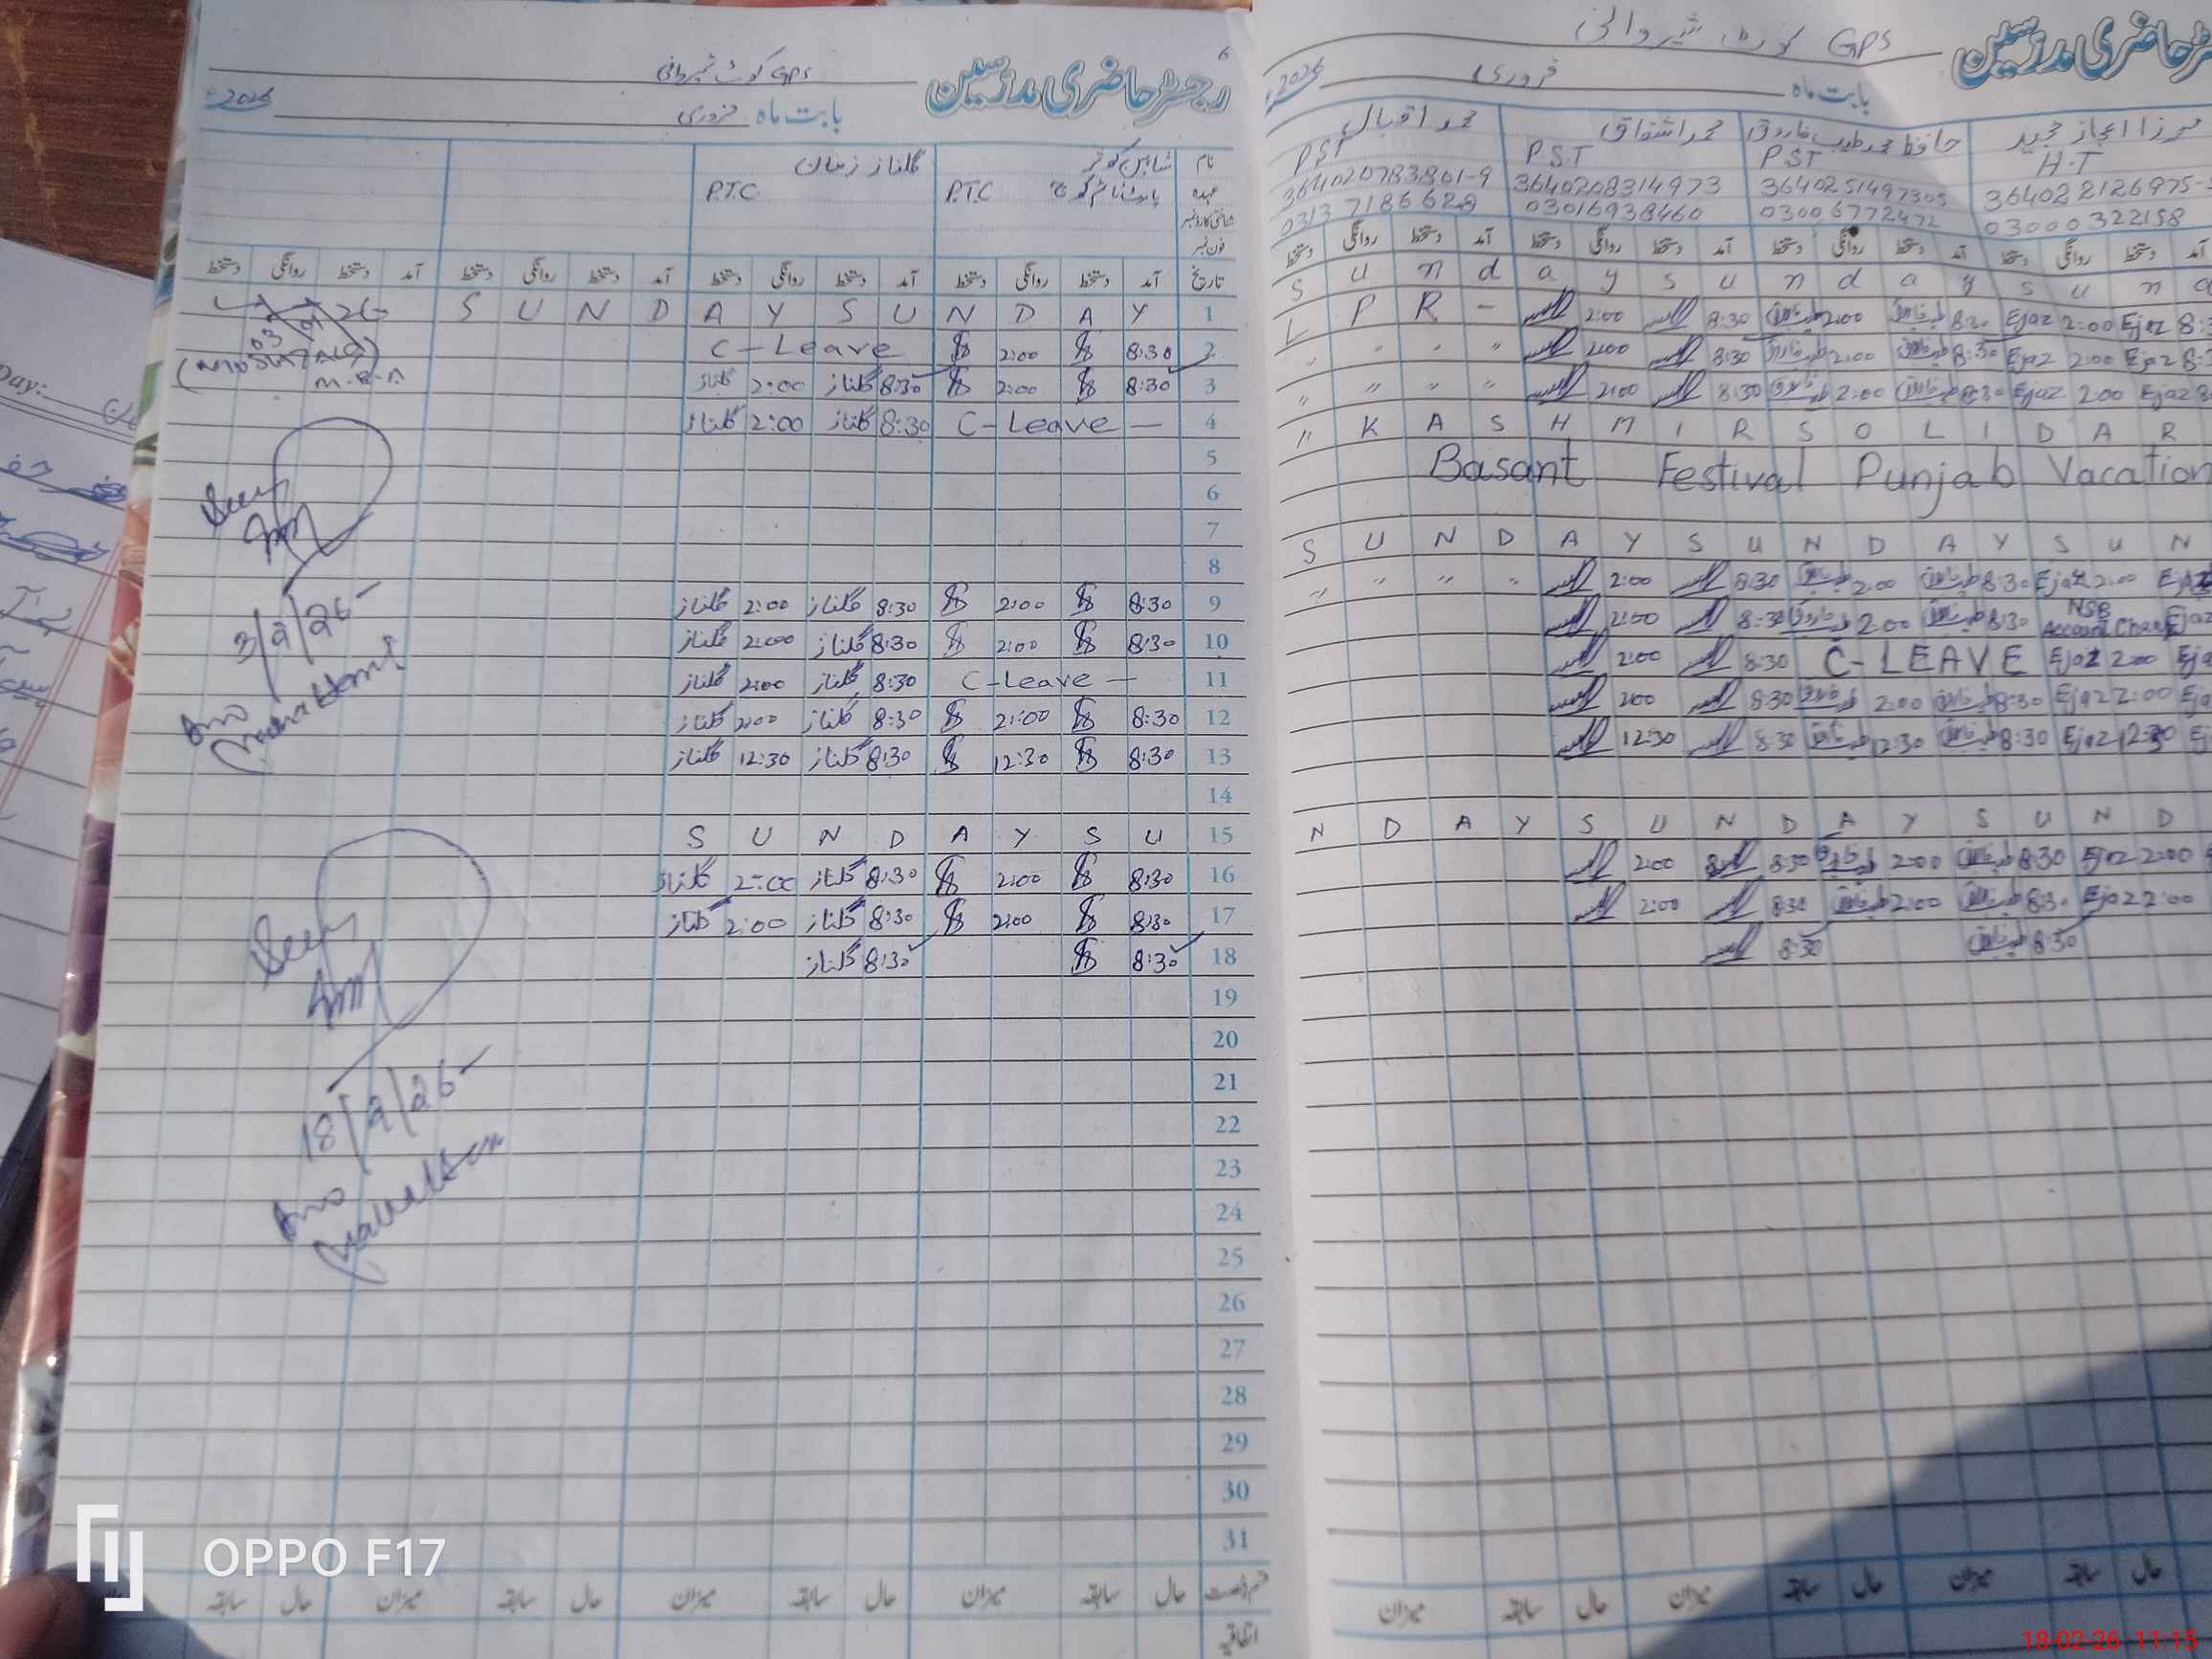 6
رجسٹر حاضری مدرسین
GPS کوٹ شیروانی
بابت ماہ فروری 2026
نام شاہین کوثر گلناز زمان
عہدہ P.T.C P.T.C
شناختی کارڈ نمبر
فون نمبر
تاریخ آمد دستخط روانگی دستخط آمد دستخط روانگی دستخط آمد دستخط روانگی دستخط آمد دستخط روانگی دستخط
1 S U N D A Y S U N D A Y
2 8:30 2:00 C-Leave
3 8:30 2:00 8:30 گلناز 2:00 گلناز
4 C-Leave — 8:30 گلناز 2:00 گلناز
5
6
7
8
9 8:30 2:00 8:30 گلناز 2:00 گلناز
10 8:30 2:00 8:30 گلناز 2:00 گلناز
11 C-Leave — 8:30 گلناز 2:00 گلناز
12 8:30 2:00 8:30 گلناز 2:00 گلناز
13 8:30 12:30 8:30 گلناز 12:30 گلناز
14
15 S U N D A Y S U
16 8:30 2:00 8:30 گلناز 2:00 گلناز
17 8:30 2:00 8:30 گلناز 2:00 گلناز
18 8:30 8:30 گلناز
19
20
21
22
23
24
25
26
27
28
29
30
31
قسم رخصت حال سابقہ میزان حال سابقہ میزان حال سابقہ میزان حال سابقہ
اتفاقیہ
Seen
3/2/26
Seen
18/2/26
Day:
رجسٹر حاضری مدرسین
GPS کوٹ شیروانی
بابت ماہ فروری 2026
مرزا اعجاز مجید حافظ محمد طیب فاروق محمد اشفاق محمد اقبال
H.T P.S.T P.S.T P.S.T
364022126975- 3640251497305 3640208314973 364020783801-9
03000322158 03006772472 03016938460 0313 7186628
آمد دستخط روانگی دستخط آمد دستخط روانگی دستخط آمد دستخط روانگی دستخط آمد دستخط روانگی دستخط
S u n d a y s u n d a y s u n d
L P R - 2:00 8:30 2:00 8:30 Ejaz 2:00 Ejaz 8:3
" " " " 2:00 8:30 2:00 8:30 Ejaz 2:00 Ejaz 8:
" " " " 2:00 8:30 2:00 8:30 Ejaz 2:00 Ejaz 8:
" K A S H M I R S O L I D A R
Basant Festival Punjab Vacation
S U N D A Y S U N D A Y S U N
" " " " 2:00 8:30 2:00 8:30 Ejaz 2:00 Ejaz
2:00 8:30 2:00 8:30 NSB Account Ejaz
2:00 8:30 C-LEAVE Ejaz 2:00 Eja
2:00 8:30 2:00 8:30 Ejaz 2:00 Eja
12:30 8:30 12:30 8:30 Ejaz 12:30 Ej
N D A Y S U N D A Y S U N D
2:00 8:30 2:00 8:30 Ejaz 2:00
2:00 8:30 2:00 8:30 Ejaz 2:00
8:30 8:30
حال سابقہ میزان حال سابقہ میزان حال سابقہ میزان
OPPO F17
18-02-26 11:15